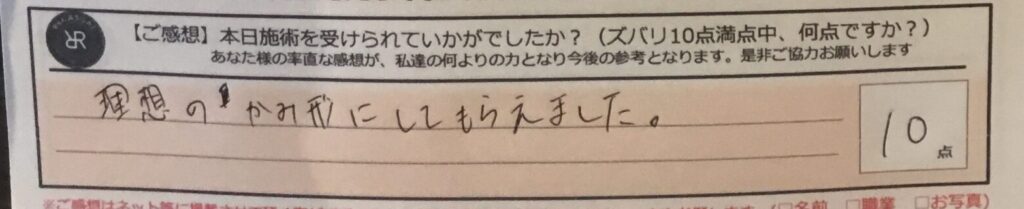 RR
【ご感想】本日施術を受けられていかがでしたか？（ズバリ10点満点中、何点ですか？）
あなた様の率直な感想が、私達の何よりの力となり今後の参考となります。是非ご協力お願いします
理想のかみ形にしてもらえました。
10点
※ご感想はネット等に掲載
（□名前　□職業　□お写真）